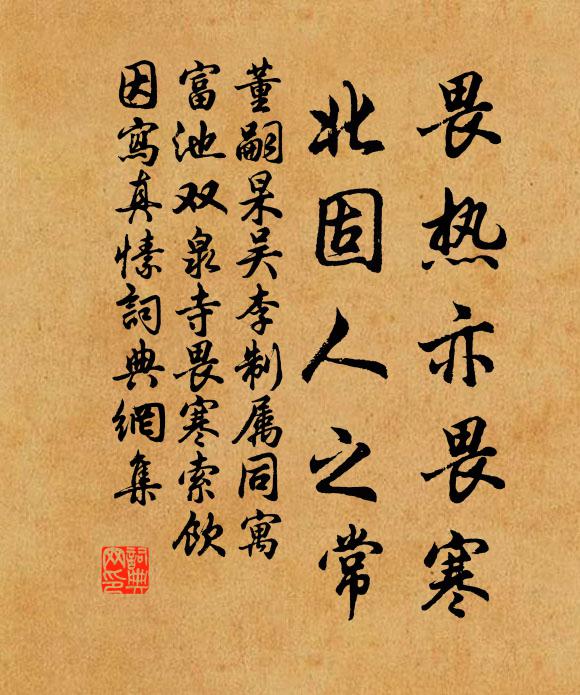 畏热亦畏寒
北固人之常
董嗣杲吴李制属同寓
富池双泉寺畏寒索饮
因寫真愫詞典網集
詞典网印